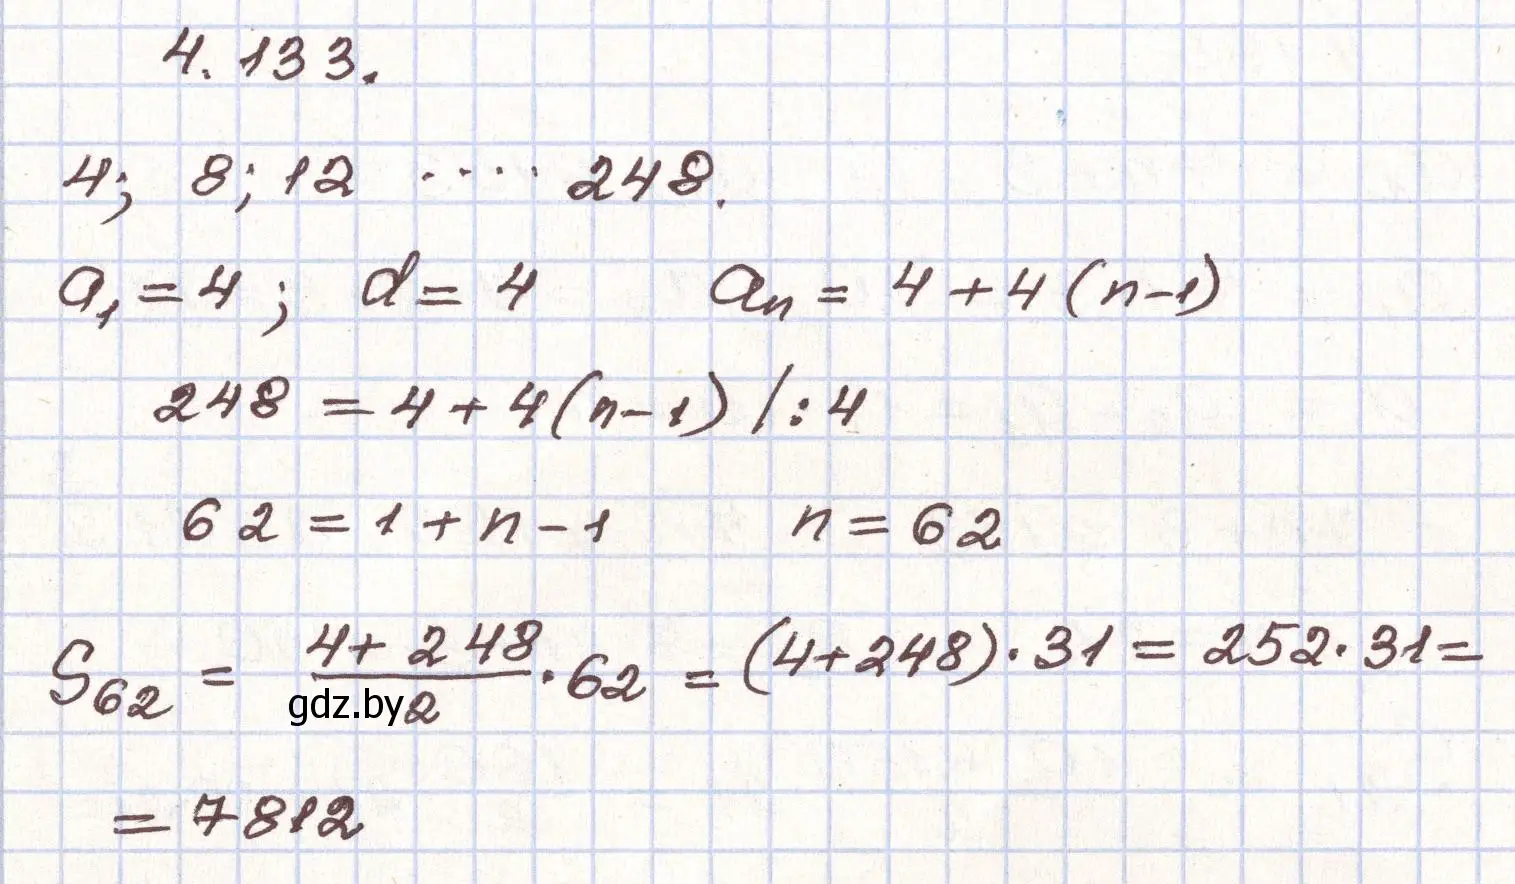 4.133.
4; 8; 12 ..... 248.
a₁ = 4; d = 4 aₙ = 4 + 4(n-1)
248 = 4 + 4(n-1) |:4
62 = 1 + n - 1 n = 62
S₆₂ = (4 + 248)/2 · 62 = (4+248) · 31 = 252 · 31 =
gdz.by
= 7812